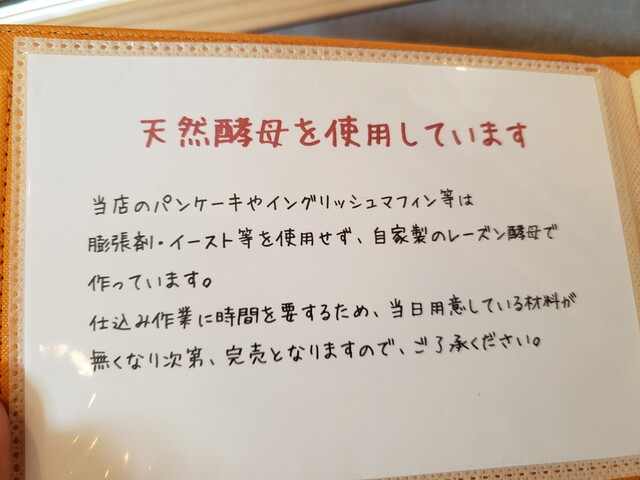 天然酵母を使用しています
当店のパンケーキやイングリッシュマフィン等は
膨張剤・イースト等を使用せず、自家製のレーズン酵母で
作っています。
仕込み作業に時間を要するため、当日用意している材料が
無くなり次第、完売となりますので、ご了承ください。